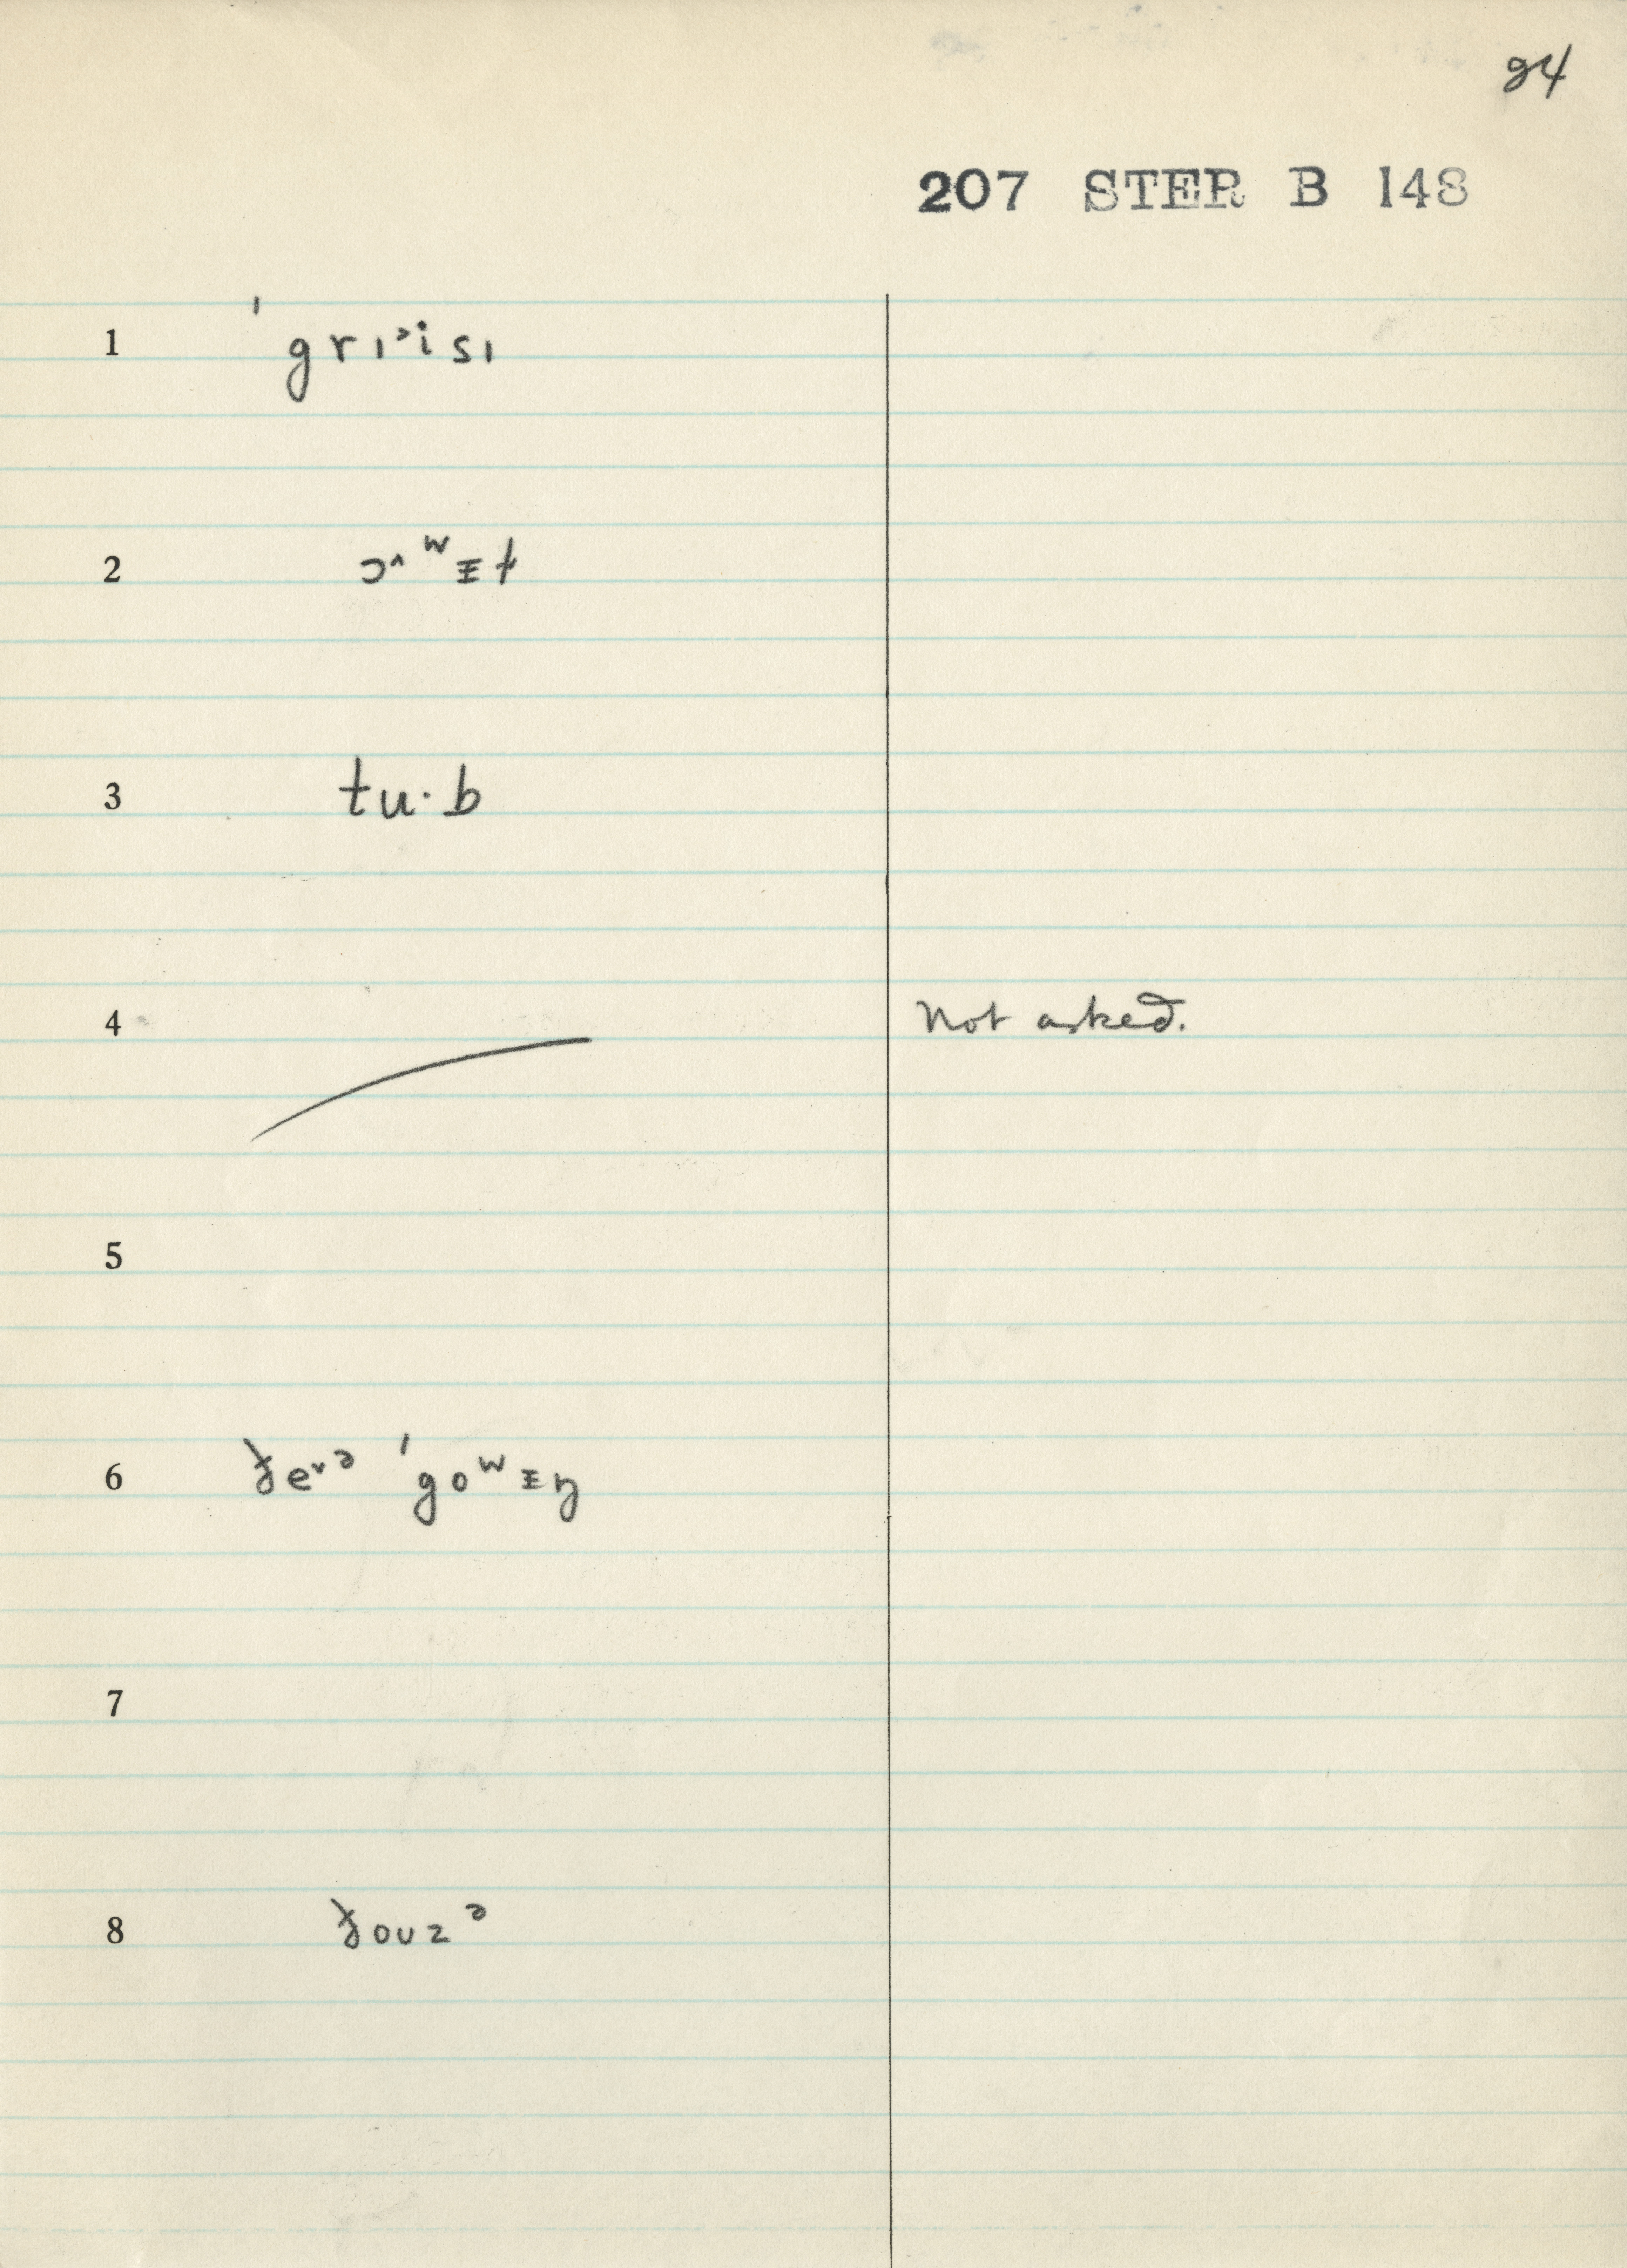 24
207 STER B 148
1 ˈgrɪ˃isɪ
2 ɔ^ʷᵻt
3 tu·b
4 Not asked.
5
6 ðe˅ᵊ ˈgoʷᵻŋ
7
8 ðouzᵊ